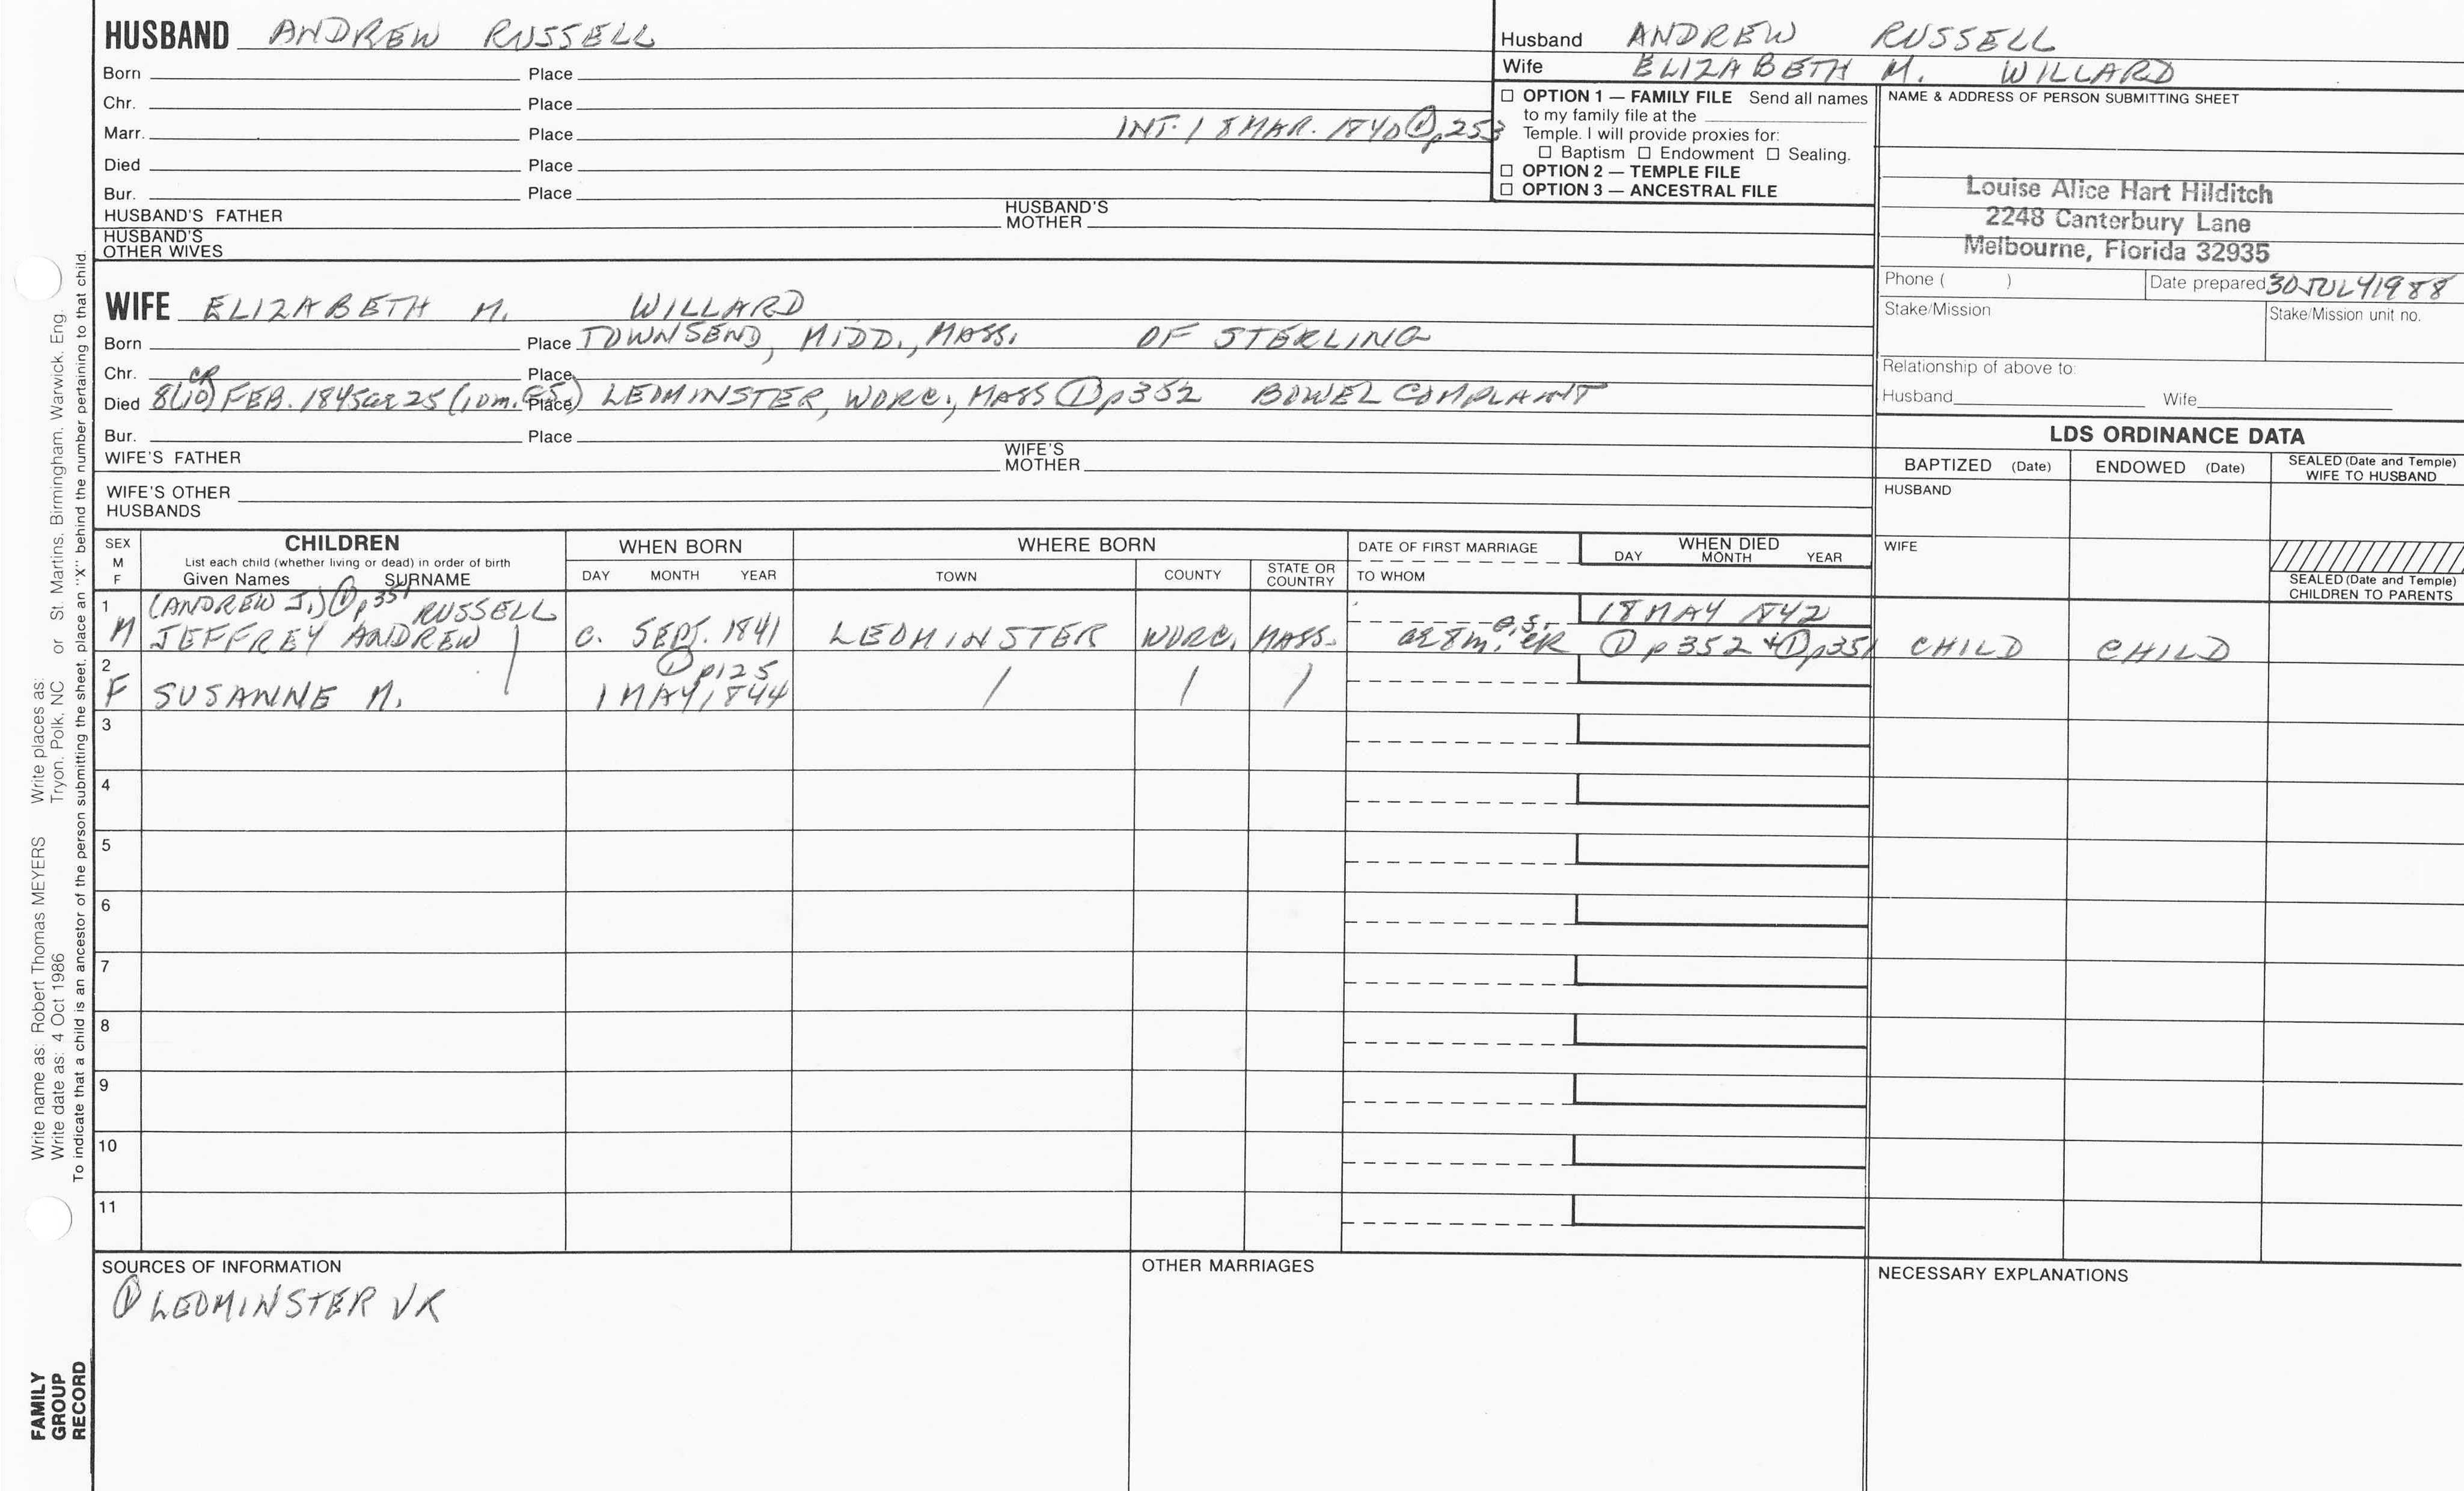 HUSBAND ANDREW RUSSELL
Born Place
Chr. Place
Marr. Place INT. 18 MAR. 1840 ① p253
Died Place
Bur. Place
HUSBAND'S FATHER HUSBAND'S MOTHER
HUSBAND'S OTHER WIVES
Husband ANDREW RUSSELL
Wife ELIZABETH M. WILLARD
☐ OPTION 1 — FAMILY FILE Send all names
to my family file at the
Temple. I will provide proxies for:
☐ Baptism ☐ Endowment ☐ Sealing.
☐ OPTION 2 — TEMPLE FILE
☐ OPTION 3 — ANCESTRAL FILE
NAME & ADDRESS OF PERSON SUBMITTING SHEET
Louise Alice Hart Hilditch
2248 Canterbury Lane
Melbourne, Florida 32935
Phone ( ) Date prepared 30 JULY 1988
Stake/Mission Stake/Mission unit no.
Relationship of above to:
Husband Wife
WIFE ELIZABETH M. WILLARD
Born Place TOWNSEND, MIDD., MASS. OF STERLING
Chr. Place
Died 8(10 CR) FEB. 1845 ae 25 (10m. GS.) Place LEOMINSTER, WORC., MASS ① p352 BOWEL COMPLAINT
Bur. Place
WIFE'S FATHER WIFE'S MOTHER
WIFE'S OTHER HUSBANDS
LDS ORDINANCE DATA
BAPTIZED (Date) ENDOWED (Date) SEALED (Date and Temple) WIFE TO HUSBAND
HUSBAND
WIFE
SEALED (Date and Temple) CHILDREN TO PARENTS
SEX M F
CHILDREN
List each child (whether living or dead) in order of birth
Given Names SURNAME
WHEN BORN
DAY MONTH YEAR
WHERE BORN
TOWN COUNTY STATE OR COUNTRY
DATE OF FIRST MARRIAGE
TO WHOM
WHEN DIED
DAY MONTH YEAR
1 (ANDREW J.) ① p351 RUSSELL 18 MAY 1842
M JEFFREY ANDREW c. SEPT. 1841 LEOMINSTER WORC. MASS. ae 8m. G.S. CR ① p352 + ① p351 CHILD CHILD
2 ① p125
F SUSANNE M. 1 MAY 1844 / / /
3
4
5
6
7
8
9
10
11
SOURCES OF INFORMATION
① LEOMINSTER VR
OTHER MARRIAGES
NECESSARY EXPLANATIONS
Write name as: Robert Thomas MEYERS Write places as:
Write date as: 4 Oct 1986 Tryon, Polk, NC or St. Martins, Birmingham, Warwick, Eng.
To indicate that a child is an ancestor of the person submitting the sheet, place an "X" behind the number pertaining to that child.
FAMILY
GROUP
RECORD